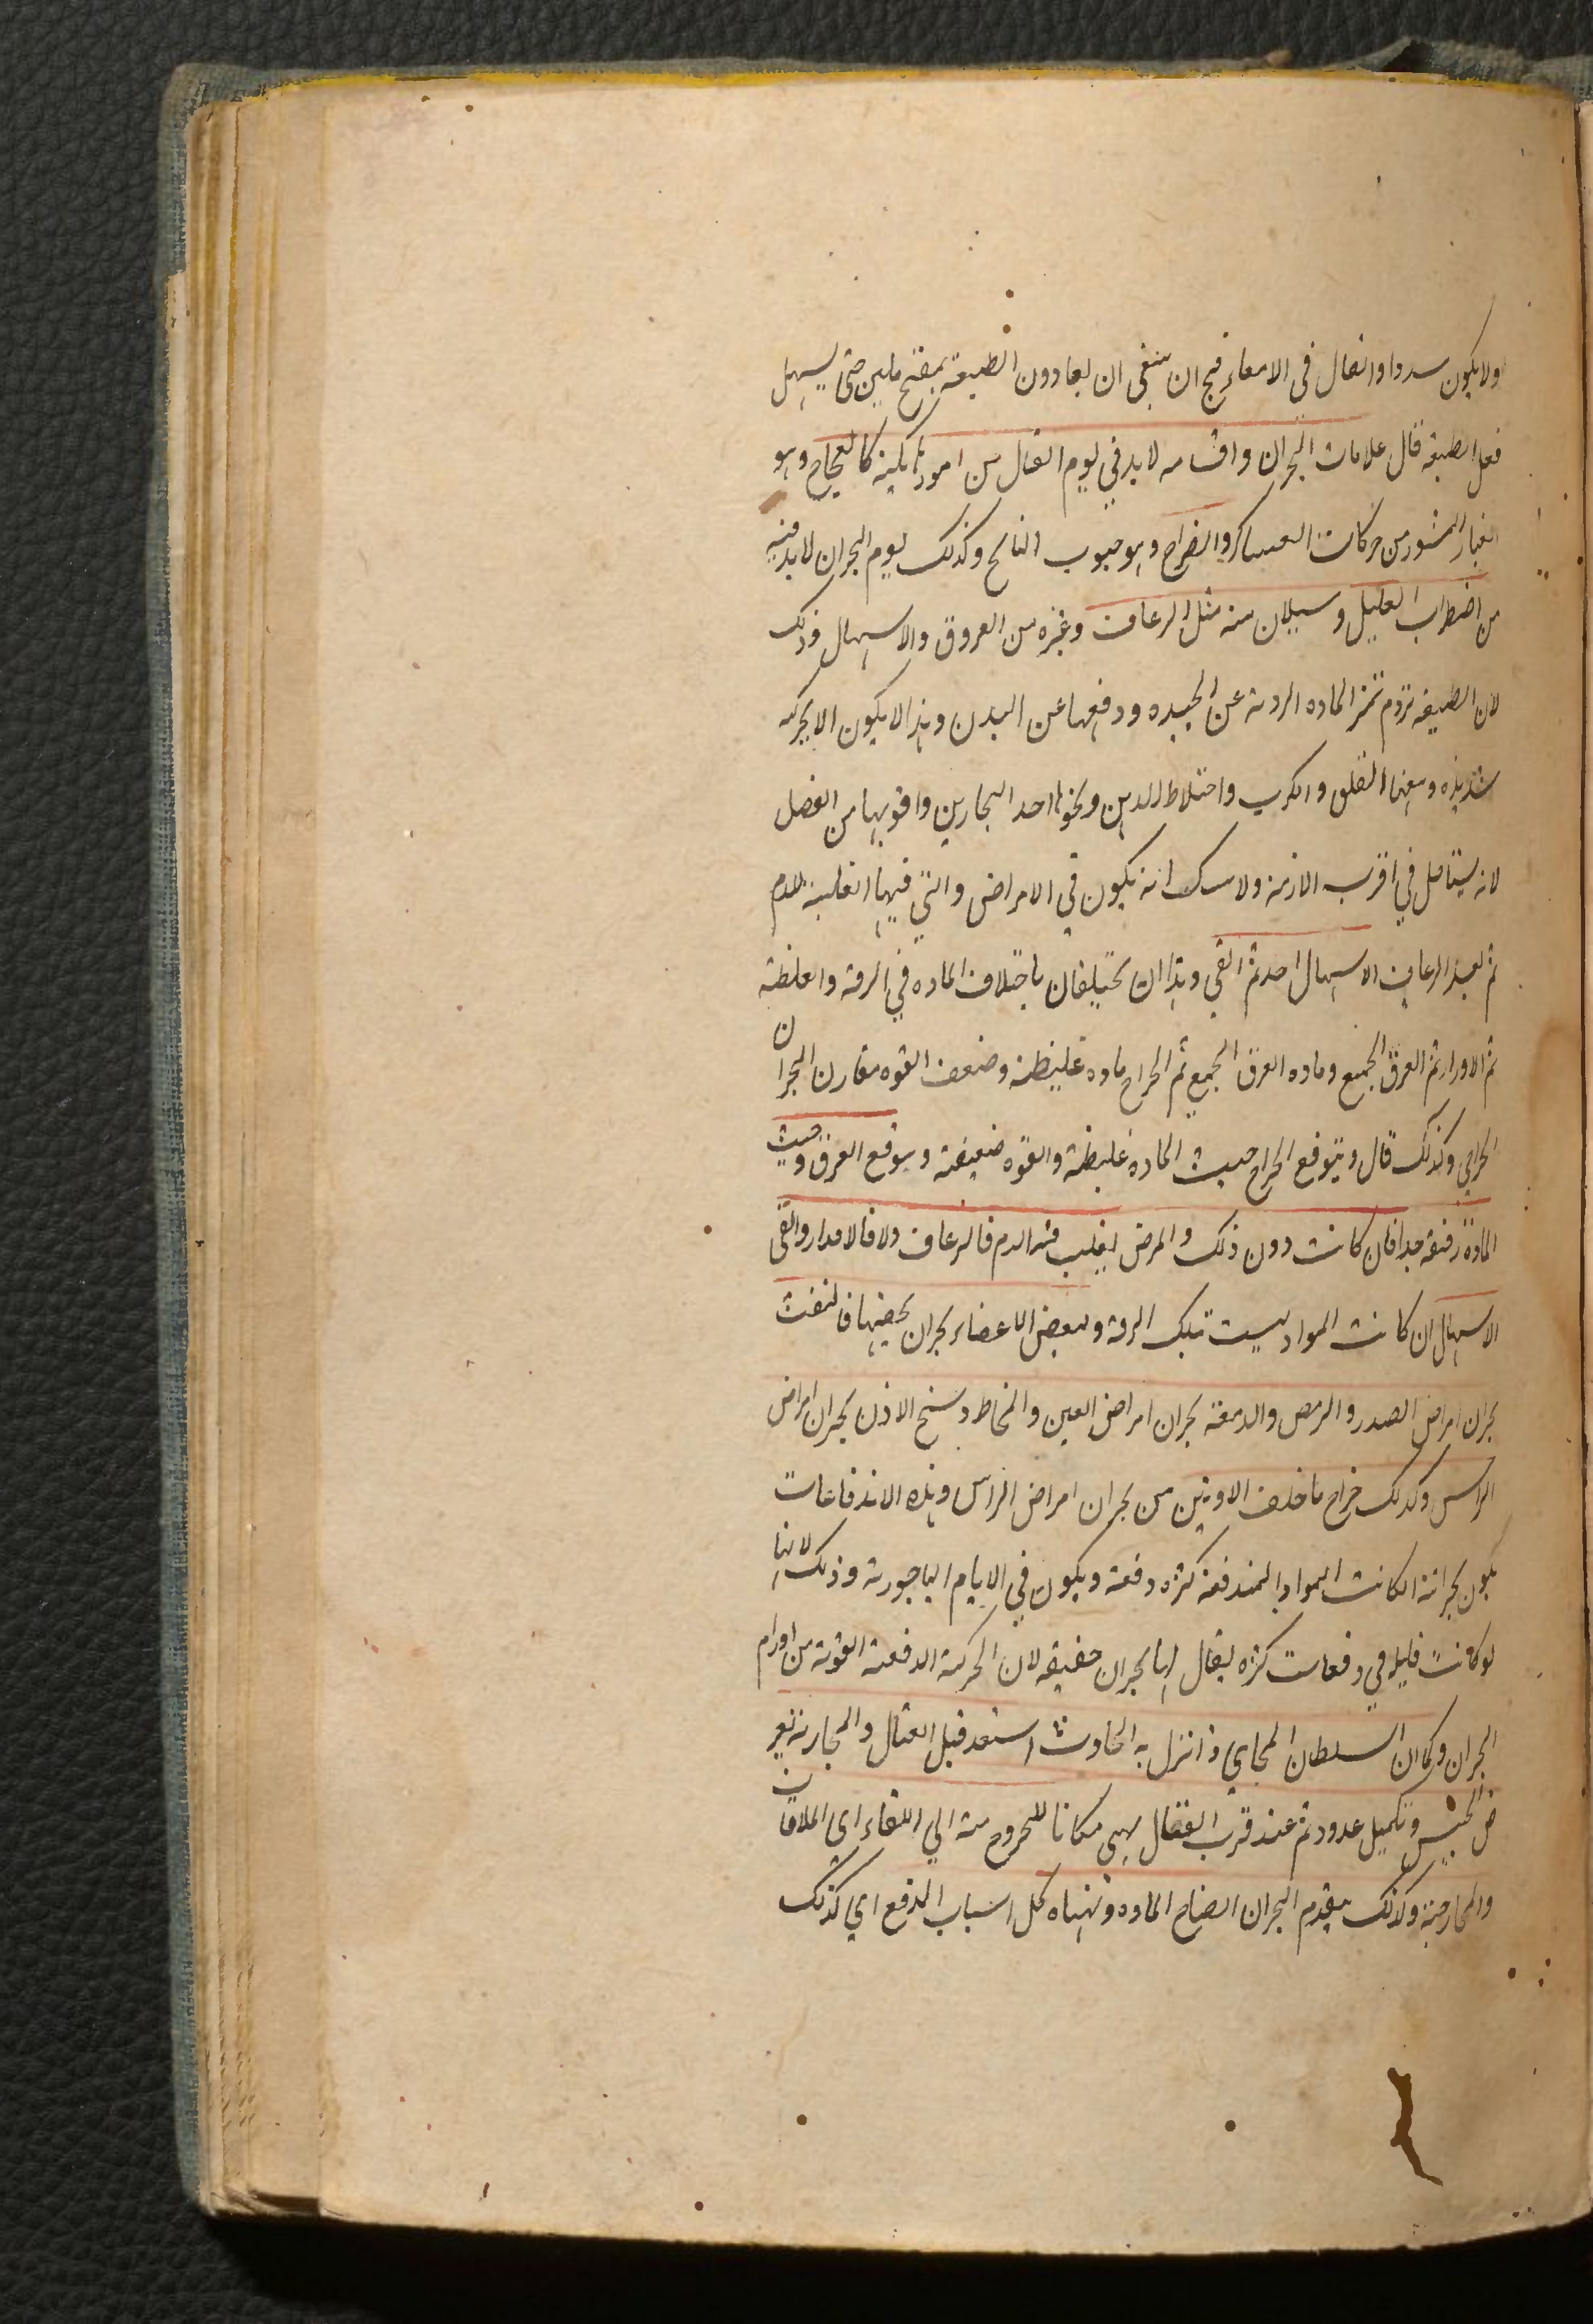 ولا يكون سددا واثفال في الامعاء فيج ان ينبغي ان يعادون الطبيعة بمفتح ملين حتى يسهل
فعل الطبيعة قال علامات البحران واقسامه لابد في يوم القتال من امور هايلة كالعجاج وهو
الغبار المشور من حركات العساكر والصراخ وهو صوب النائح وكذلك يوم البحران لابد فيه
من اضطراب العليل وسيلان منه مثل الرعاف وغيره من العروق والاسهال وذلك
لان الطبيعة تروم تميز الماده الردية عن الجيده ودفعها عن البدن وهذا لا يكون الا بحركه
شديده ومعها القلق والكرب واختلاط الذهن ونحوها احد البحارين واقويها من الفصل
لانه يستاصل في اقرب الازمنة ولا شك انه يكون في الامراض والتي فيها الغلبة للدم
ثم بعد الرعاف الاسهال احد ثم القي وهذا ان تختلفان باختلاف الماده في الرقة والغلظة
ثم الادرار ثم العرق الجميع وماده العرق الجميع ثم الخراج ماده غليظة وضعف القوه مقارن البحران
الخراجي وكذلك قال ويتوقع الخراج حيث الماده غليظة والقوه ضعيفة ويتوقع العرق وحيث
المادة رقيقة جدا فان كانت دون ذلك والمرض يغلب فيه الدم فالرعاف ولا فالادرار والقي
الاسهال ان كانت المواد ليست تبلك الرقة ولبعض الاعضاء بحران يخصها فالنفث
بحران امراض الصدر والرمص والدمعة بحران امراض العين والمخاط وسنح الاذن بحران امراض
الراس وكذلك خراج ما خلف الاذنين من بحران امراض الراس وهذه الاندفاعات
يكون بحرانة الكانت المواد المندفعة كثره دفعة ويكون في الايام الباحورية وذلك لانها
لو كانت قليله في دفعات كثره يقال لها بحران حقيقه لان الحركة الدفعية القوية من لوازم
البحران وكما ان السلطان المحامي اذا نزل به الحادث استعد قبل القتال والمحاربة بعر
ض الجيش وتكميل عدود ثم عند قرب القتال يهيي مكانا للخروج منه الي اللقاء اي الملاقات
والمحاربة وكذلك يتقدم البحران انضاج الماده وتهياه كل اسباب الدفع اي كذلك